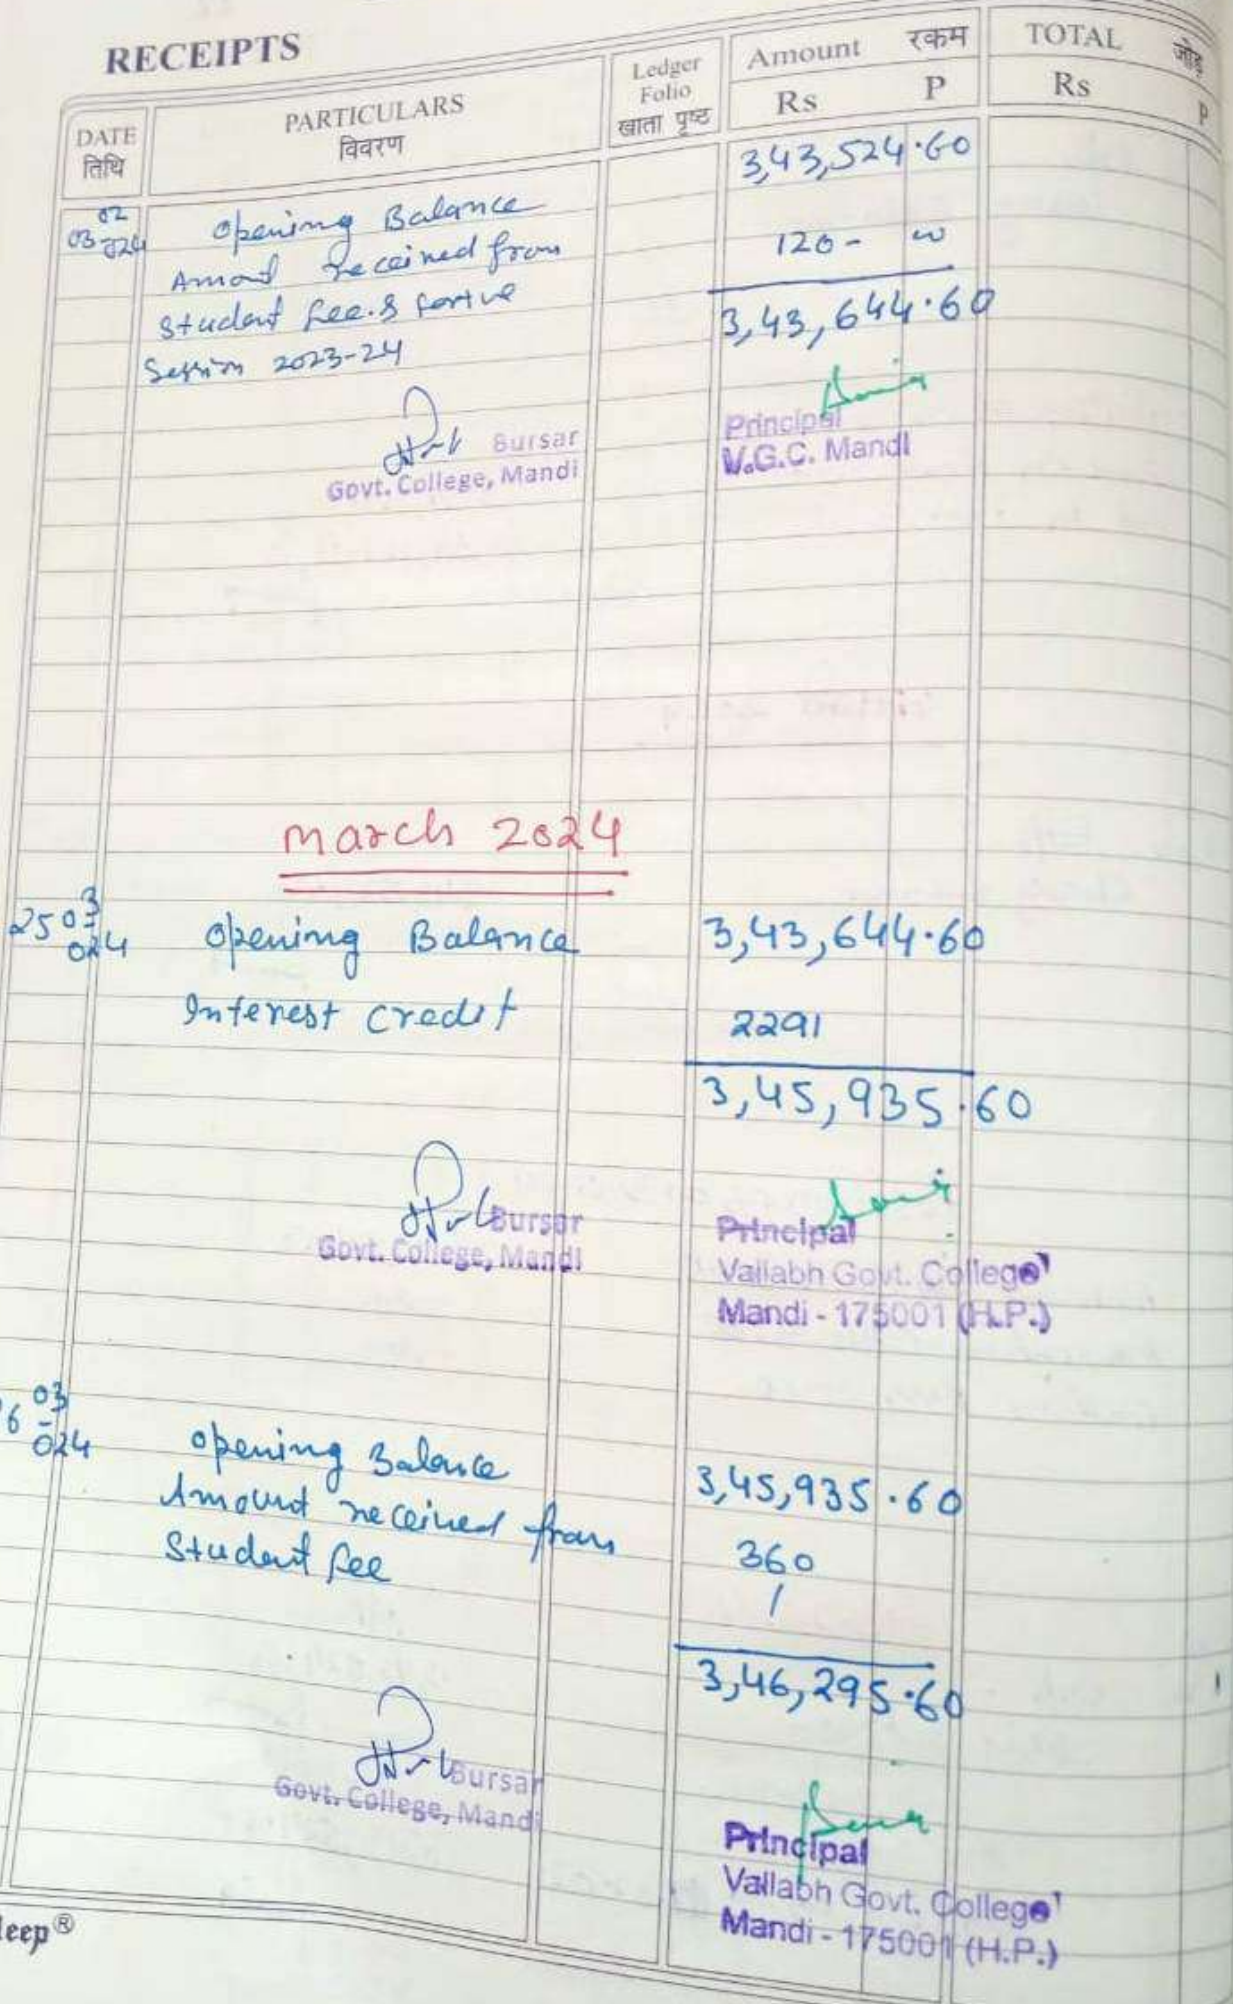 RECEIPTS
DATE
तिथि
PARTICULARS
विवरण
Ledger
Folio
खाता पृष्ठ
Amount रकम
Rs P
TOTAL जोड़
Rs P
03 02 024
Opening Balance 3,43,524.60
Amout received from 120 - 00
Student fee.8
Session 2023-24
3,43,644.60
Bursar
Govt. College, Mandi
Principal
V.G.C. Mandi
March 2024
25 03 024
Opening Balance 3,43,644.60
Interest credit 2291
3,45,935.60
Bursar
Govt. College, Mandi
Principal
Vallabh Govt. College
Mandi - 175001 (H.P.)
6 03 024
Opening Balance 3,45,935.60
Amount received from 360
Student fee /
3,46,295.60
Bursar
Govt. College, Mandi
Principal
Vallabh Govt. College
Mandi - 175001 (H.P.)
leep®